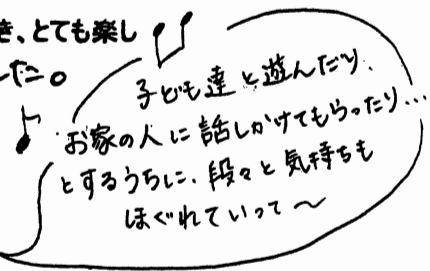 き、とても楽し
た。
子ども達と遊んだり、
お家の人に話しかけてもらったり…
とするうちに、段々と気持ちも
ほぐれていって〜